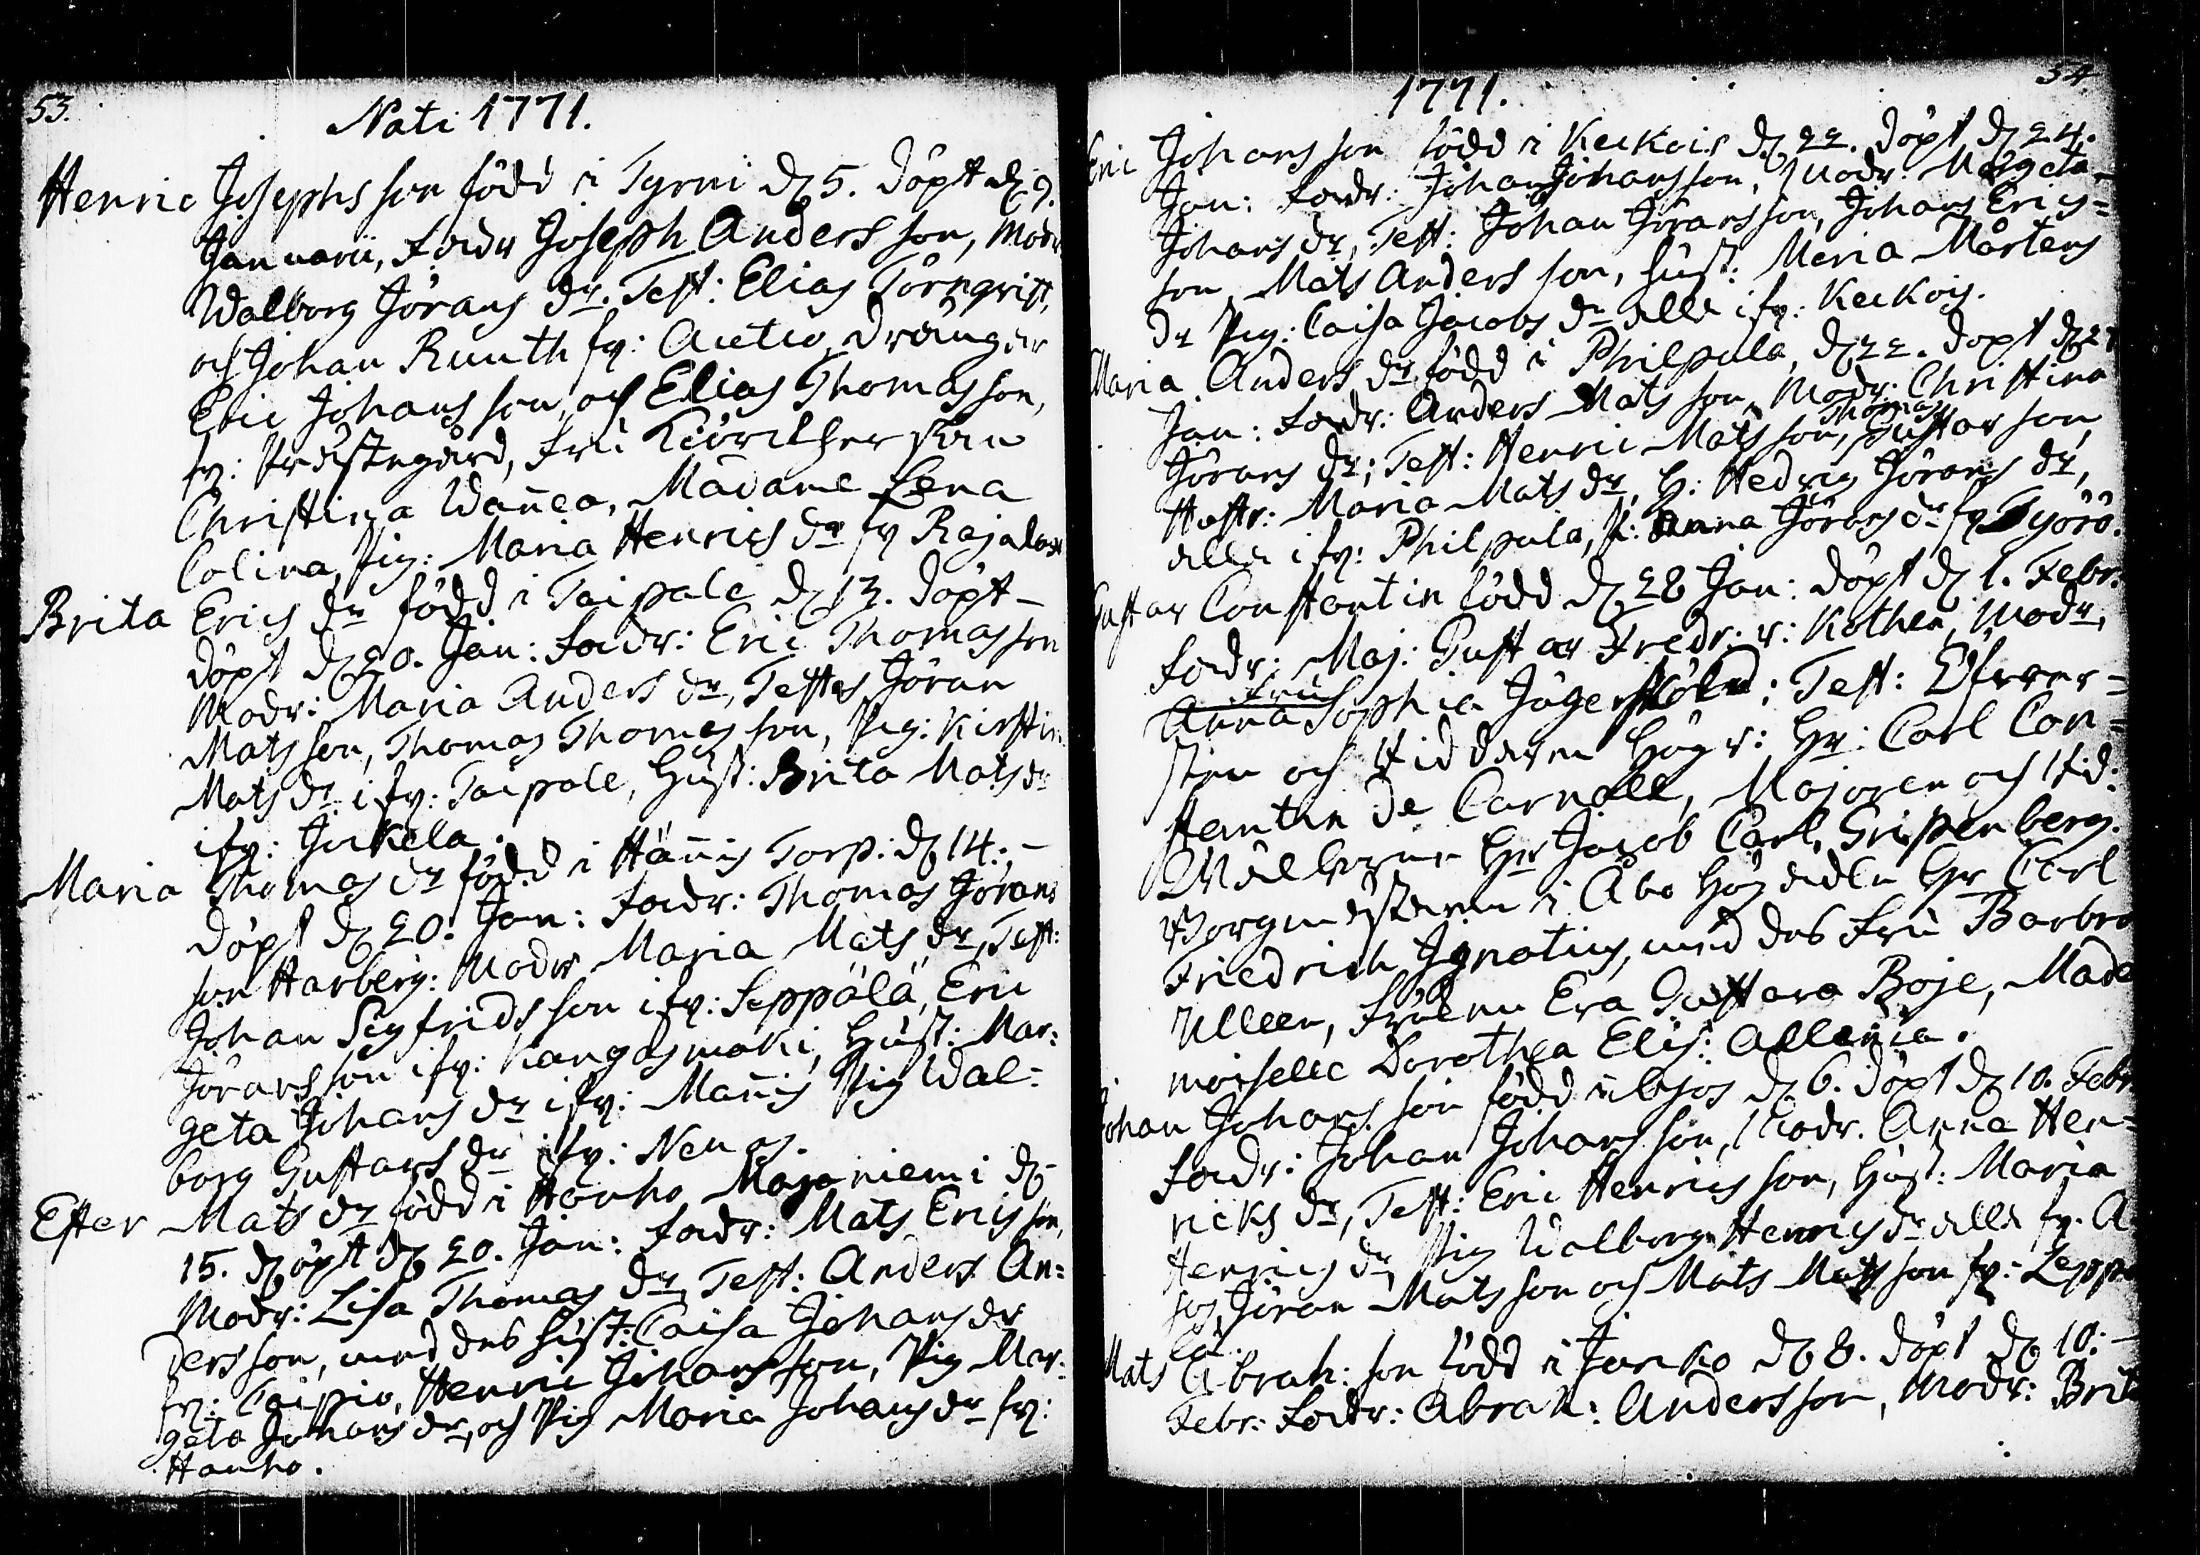 53.
Nati 1771.
Henric Josephs son född i Tyrni dȝ 5. döpt dȝ 9.
Januarii, Fadr Joseph Anders son, Modr
Walborg Jörans dr. Test: Elias Törnqvist,
och Johan Ruuth fr: Autio, drängar
Eric Johans son, och Elias Thomas son,
fr: Prästegård, Fru
Christina Wañea, Madame Lena
Colina, Pig: Maria Henrics dr fr Rajalax
Brita Erics dr född i Taipale dȝ 13. döpt -
döpt dȝ 20. Jan: Fadr: Eric Thomas son
Modr: Maria Anders dr, Testes Jöran
Mats son, Thomas Thomas son, Pig: Kirstin
Mats dr i fr: Taipale, Hust: Brita Mats dr
i fr: Jukela.
Maria Thomas dr född i Häñis Torp: dȝ 14. -
döpt dȝ 20. Jan: Fadr: Thomas Jörans
son Harberg: Modr Maria Mats dr, Test:
Johan Sigfrids son i fr: Seppälä, Eric
Jörans son i fr: Kangasmäki, Hust: Mar:
geta Johans dr i fr: Mañis Pig Wal:
borg Gustafs dr i fr: Nen
Ester Mats dr född i Hauho Majaniemi dȝ
15. döpt dȝ 20. Jan: Fadr: Mats Erics son,
Modr: Lisa Thomas dr, Test: Anders An:
ders son, med des hust: Caisa Johans dr
fr: Taipio, Henric Johans son, Pig Mar:
geta Johans dr, och Pig Maria Johans dr fr:
Hauho.
54
1771.
Eric Johans son född i Keckois dȝ 22. döpt dȝ 24.
Jan: Fadr: Johan Johans son, Modr: Margeta
Johans dr, Test: Johan Jörans son, Johans Erics=
son Mats Anders son, hust: Maria Mårtens
dr Pig: Caisa Jacobs dr alla i fr: Keckois.
Maria Anders dr född i Philpula dȝ 22. döpt dȝ 27
Jan: Fadr: Anders Mats son, Modr: Christina
Jörans dr; Test: Henric Mats son, Thomas Gustav son,
Hustr: Maria Mats dr, H: Hedvig Jörans dr,
alla i fr: Philpula, P: Anna Jörans dr fr Työrö.
Gustav Constantin född dȝ 28 Jan: döpt dȝ 1. Febr.
Fadr: Maj: Gustav Fredr: v: Kothen, Modr,
Fru
Anna Sophia Jägerskiöld; Test: Öfver=
sten och Riddaren Hög v: Hr: Carl Con=
stantin De Carnall, Majoren och Rid:
Wälborne Hr Jacob Carl Gripenberg.
Borgmästaren i Åbo Högädle Hr Carl
Friedrich Ignatius, med des Fru Barbro
Ulleen, Fröken Eva Gustava Boje, Made
moiselle Dorothea Elis: Allenia.
Johan Johans son född i dȝ 6. döpt dȝ 10. Febr
Fadr: Johan Johans son, Modr. Anna Hen=
ricks dr, Test: Eric Henrics son, Hust: Maria
Henrics dr, Pig Walborg Henrics dr alla fr. A
sos, Jöran Mats son och Mats Mats son fr: Leppä
lä.
Mats Abrah: son född i Junko dȝ 8. döpt dȝ 10. -
Febr: Fadr: Abrah: Anders son, Modr: Brita